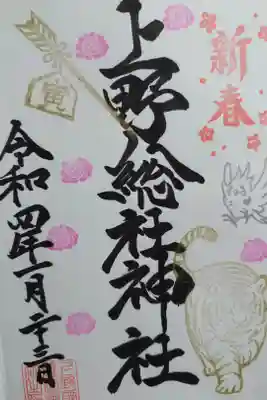 新春
上野総社神社
寅
令和四年一月二十二日